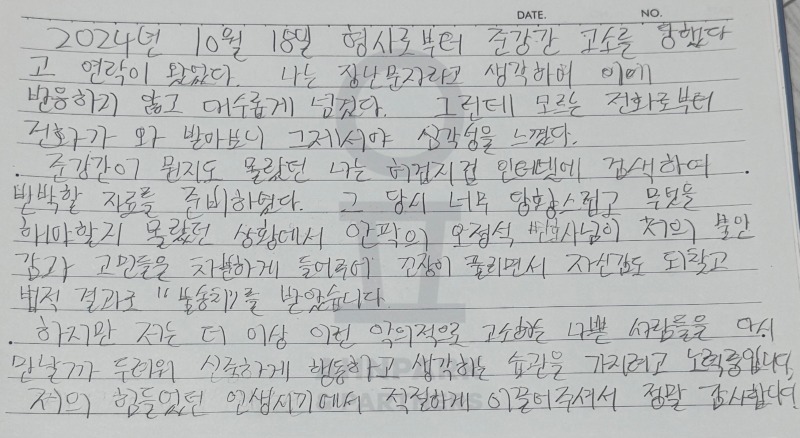 DATE. NO.
2024년 10월 18일 형사로부터 준강간 고소를 당했다
고 연락이 왔었다. 나는 장난문자라고 생각하여 이에
반응하지 않고 대수롭게 넘겼다. 그런데 모르는 전화로부터
전화가 와 받아보니 그제서야 심각성을 느꼈다.
준강간이 뭔지도 몰랐던 나는 허겁지겁 인터넷에 검색하여
반박할 자료를 준비하였다. 그 당시 너무 당황스럽고 무엇을
해야할지 몰랐던 상황에서 안팍의 오정석 저의 불안
감과 고민들을 차분하게 들어주어 긴장이 풀리면서 자신감도 되찾고
법적 결과로 "불송치"를 받았습니다.
하지만 저는 더 이상 이런 악의적으로 고소하는 나쁜 사람들을 다시
만날까 두려워 신중하게 행동하고 생각하는 습관을 가지려고 노력중입니다.
저의 힘들었던 인생시기에서 적절하게 이끌어주셔서 정말 감사합니다.